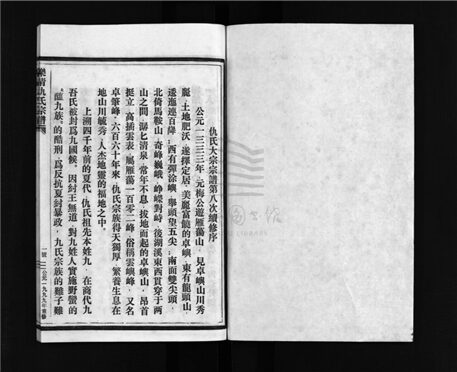 仇氏大宗宗譜第八次續修序
公元一三三三年，元梅公遊雁蕩山，見卓嶼山川秀
麗，土地肥沃，遂擇定居。美麗富饒的卓嶼，東有龍頭山，
逶迤連百降；西有彈涂嶼，舉頭望五尖；南面雙尖頭，
北倚馬鞍山，奇峰巍峨，崢嶸對峙，後湖溪東西貫穿于兩
山之間，潺匕清泉，常年不息，拔地而起的卓嶼山，昂首
挺立，高插雲表，屬雁蕩一百零二峰，俗稱雲嶼峰，又名
卓筆峰，六百六十年來，仇氏宗族得天獨厚，繁養生息在
地山川毓秀，人杰地靈的福地之中。
上溯四千年前的夏代，仇氏祖先本姓九，在商代九
吾氏被封爲九國候，因紂王無道，對九姓人實施野蠻的
醢九族，的酷刑，爲反抗夏紂暴政，九氏宗族的雖子雖
樂清仇氏宗譜
二號
公元一九九九年重修